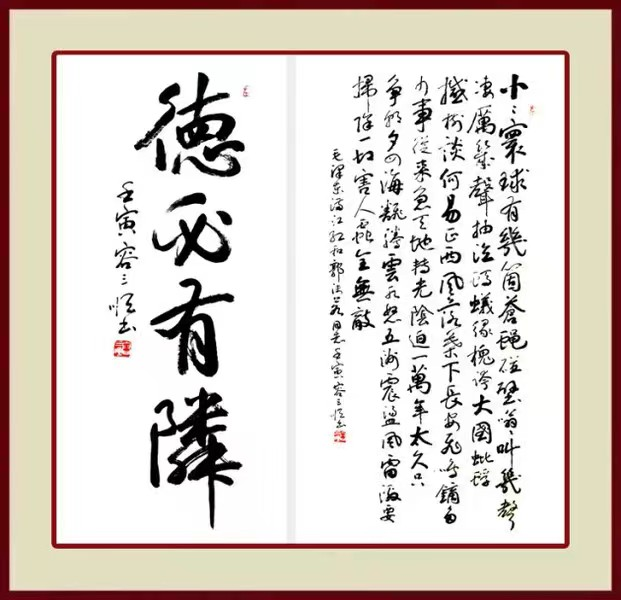 小〻寰球有幾箇蒼蠅碰壁嗡〻叫幾聲
凄厲幾聲抽泣螞蟻緣槐誇大國蚍蜉
撼樹談何易正西風落葉下長安飛鳴鏑多
少事從來急天地轉光陰迫一萬年太久只
争朝夕四海翻騰雲水怒五洲震盪風雷激要
掃除一切害人蟲全無敵
毛澤东满江红和郭沫若同志壬寅容三书
德必有隣
壬寅容三书